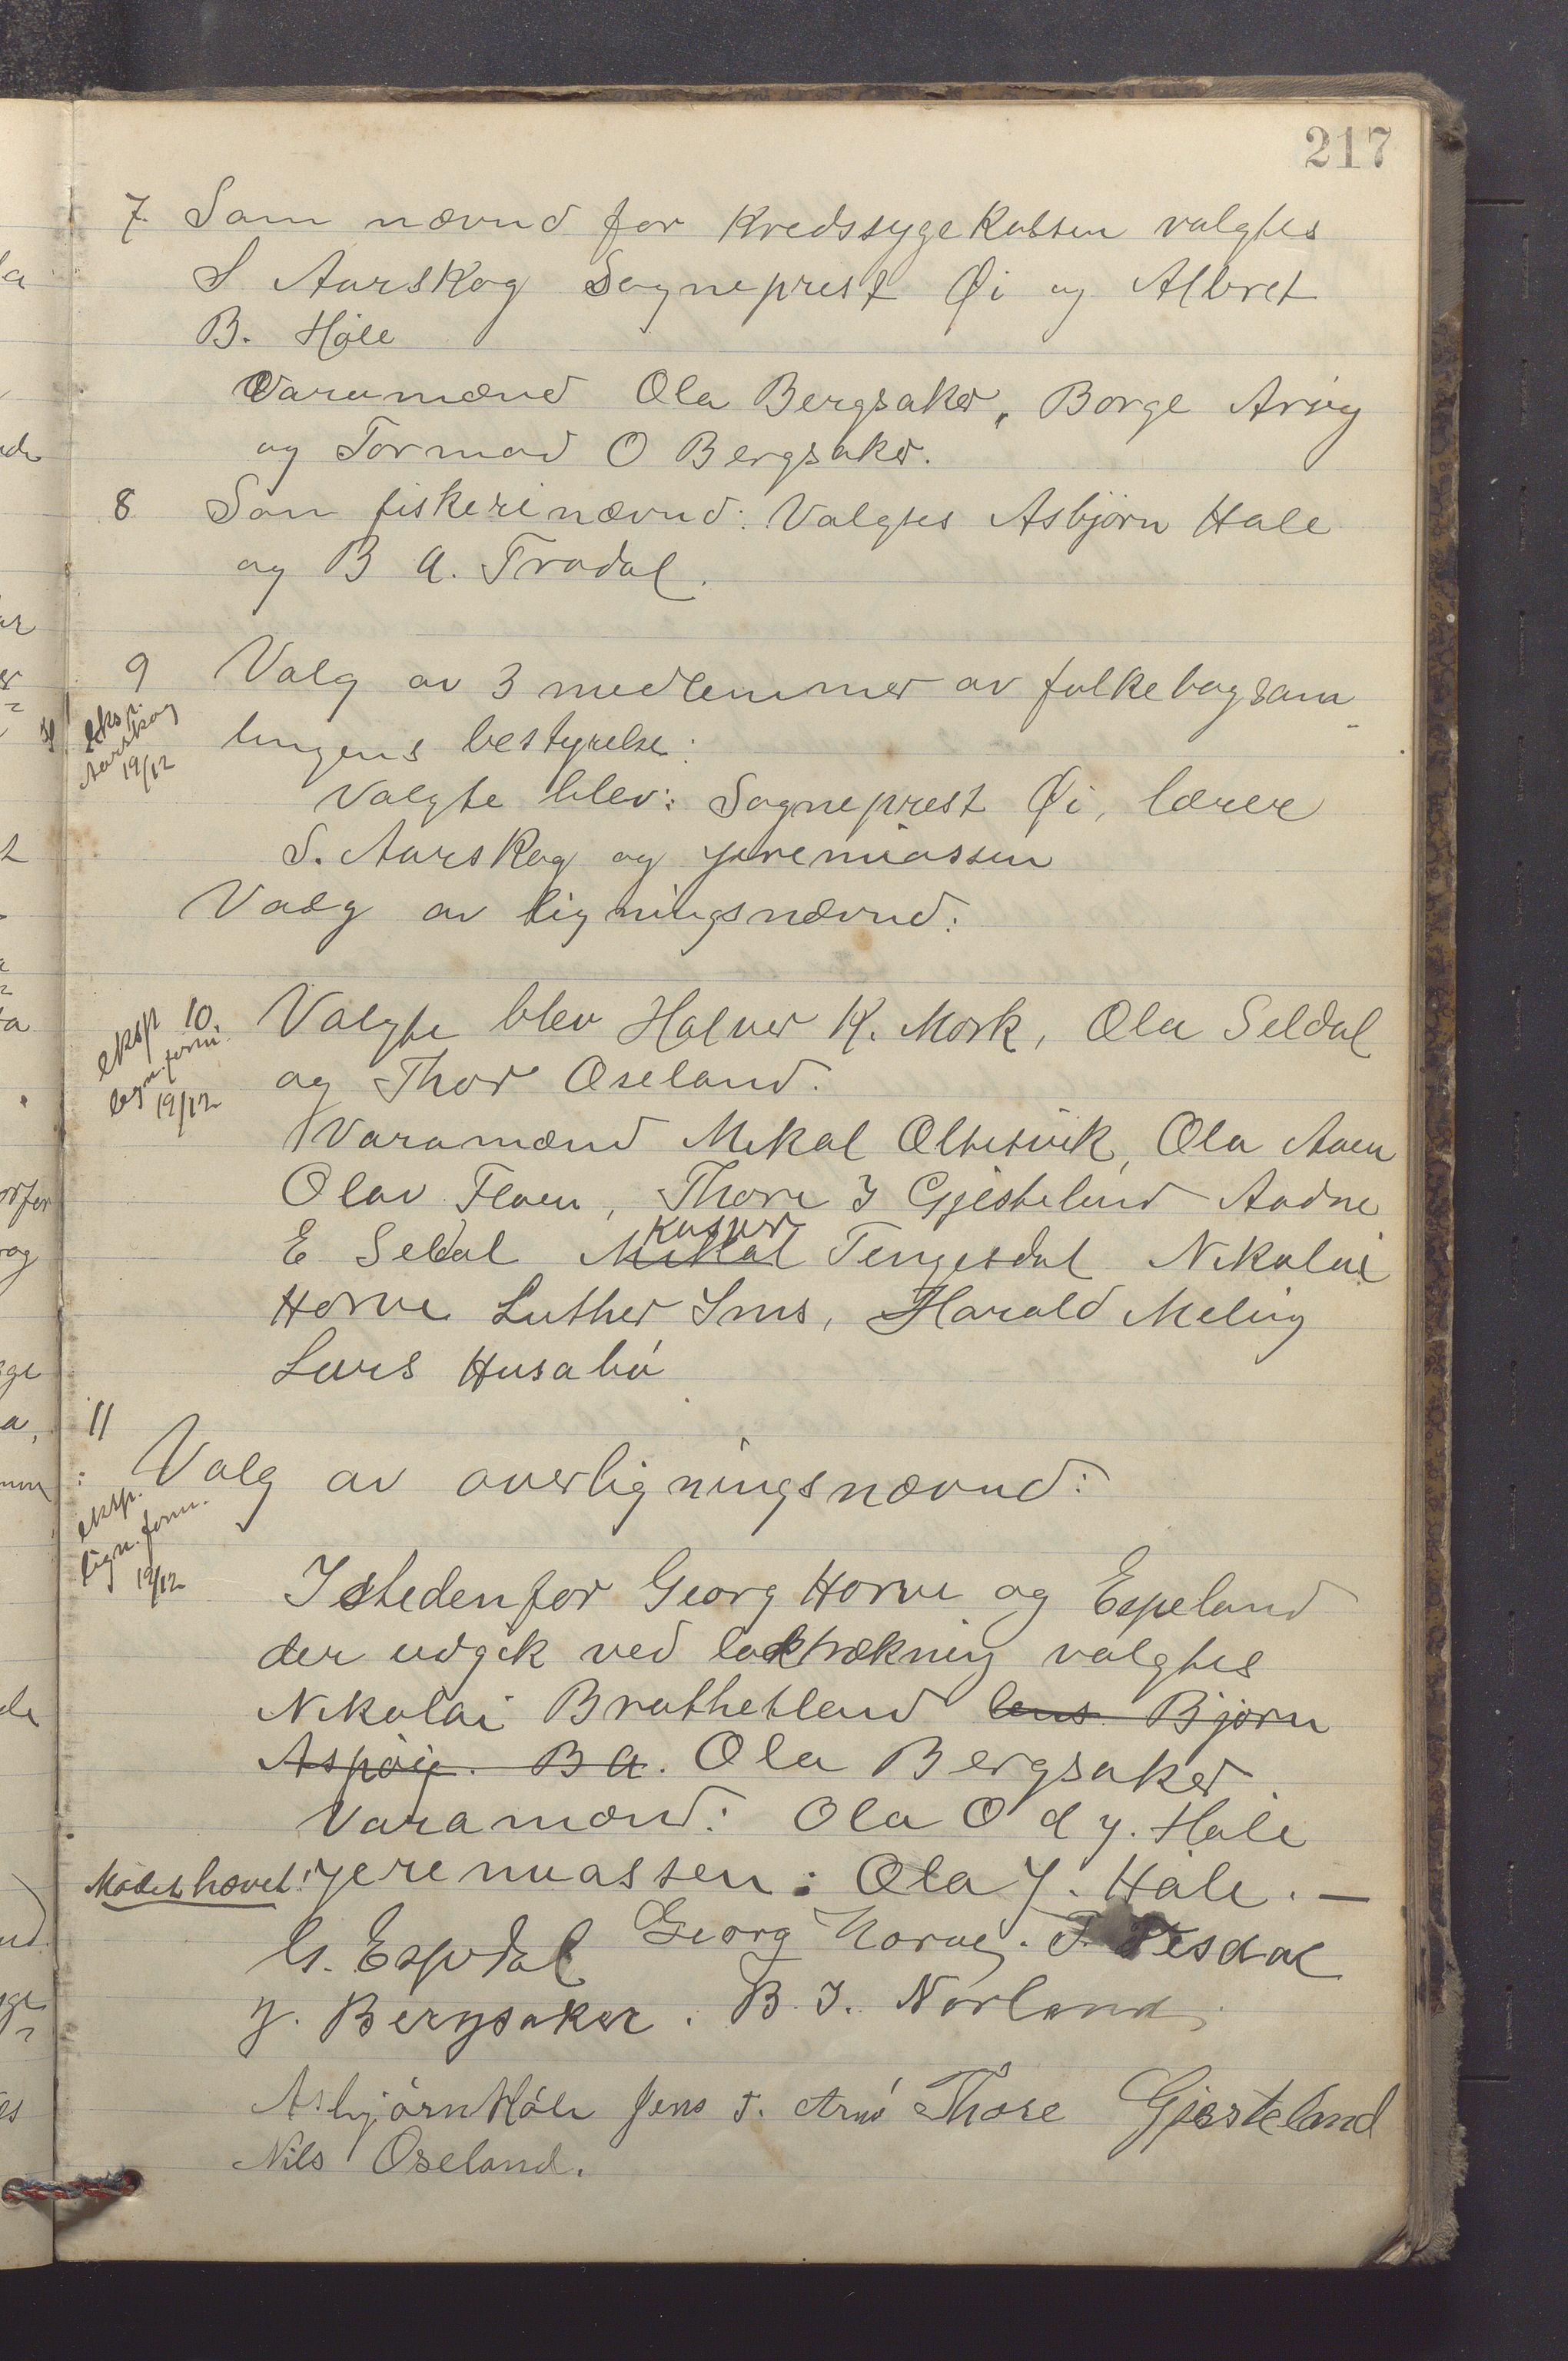 217
7 Som nævnd for Kredssygekassen valgtes
S Aarskog Sogneprest Øi og Albret
B. Høle
Varamænd Ola Bergsaker, Borge Arøy
og Tormod O Bergsaker.
8 Som fiskerinævnd: Valgtes Asbjørn Hale
og B A. Trodal.
9 Valg av 3 medlemmer av folkebogsam
eksp. Aarskog 19/12
lingens bestyrelse:
Valgte blev: Sogneprest Øi, lærer
S. Aarskog og Jeremiassen
Valg av ligningsnævnd:
eksp lign. form. 19/12
10. Valgte blev Halver K. Mork, Ola Seldal
og Thor Oseland.
Varamænd Mikal Oltesvik, Ola Aaen
Olav Floen, Thore I Gjesteland Aadne
E Seldal Mikal Kasper Tengesdal Nikolai
Horve Luther Ims, Harald Meling
Lars Husabø
11
Valg av overligningsnævnd:
eksp. lign. form. 19/12
Istedenfor Georg Horve og Espeland
der udgik ved lodtrækning valgtes
Nikolai Brathetland lens Bjørn
Aspøy. B A. Ola Bergsaker
Varamænd: Ola O d y. Hale
Mødet hævet! Jeremiassen: Ola J. Høle. —
G. Espedal Georg Horve. T. Tesdal
J. Bergsaker. B. I. Norland.
Asbjørn Høle Jens T. Arnø Thore Gjesteland
Nils Oseland.